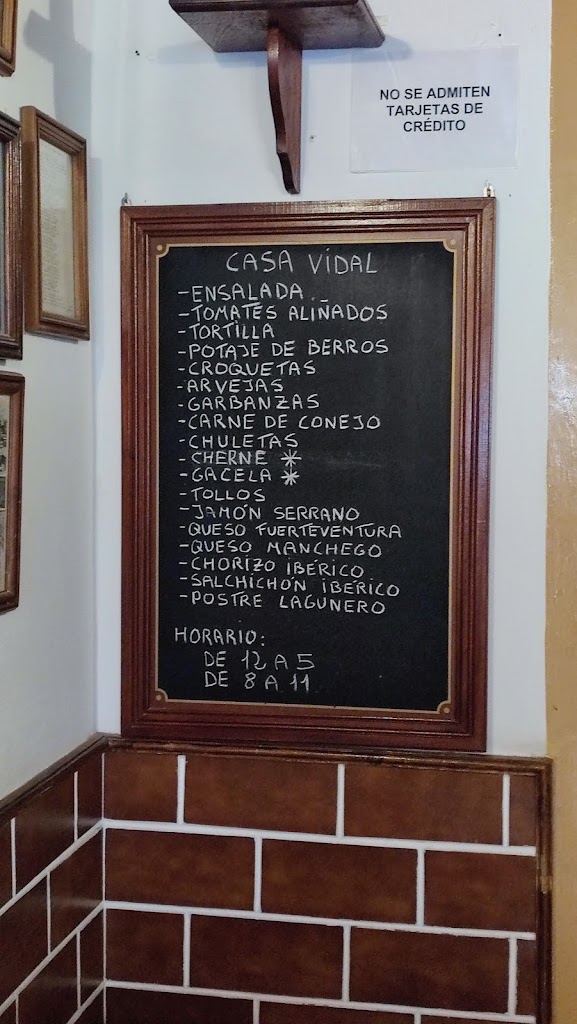 NO SE ADMITEN
TARJETAS DE
CRÉDITO
CASA VIDAL
-ENSALADA
-TOMATES ALIÑADOS
-TORTILLA
-POTAJE DE BERROS
-CROQUETAS
-ARVEJAS
-GARBANZAS
-CARNE DE CONEJO
-CHULETAS
-CHERNE *
-GACELA *
-TOLLOS
-JAMÓN SERRANO
-QUESO FUERTEVENTURA
-QUESO MANCHEGO
-CHORIZO IBÉRICO
-SALCHICHÓN IBÉRICO
-POSTRE LAGUNERO
HORARIO:
DE 12 A 5
DE 8 A 11